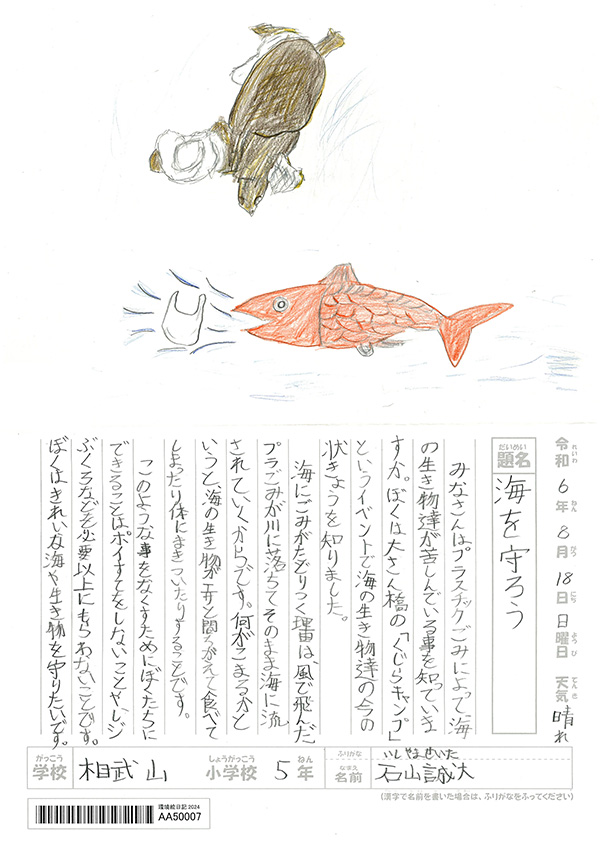 令和 6 年 8 月 18 日 日 曜日 天気 晴れ
れいわ ねん がつ にち ようび てんき
だいめい
題名 海を守ろう
みなさんはプラスチックごみによって海
の生き物達が苦しんでいる事を知っていま
すか。ぼくは大さん橋の「くじらキャンプ」
というイベントで海の生き物達の今の
状きょうを知りました。
海にごみがたどりつく理由は、風で飛んだ
プラごみが川に落ちてそのまま海に流
されていくからです。何がこまるかと
いうと、海の生き物がエサと間ちがえて食べて
しまったり体にまきついたりすることです。
このような事をなくすためにぼくたちに
できることはポイすてをしないことや、レジ
ぶくろなどを必要以上にもらわないことです。
ぼくはきれいな海や生き物を守りたいです。
がっこう しょうがっこう ねん ふりがな いしやませいた
学校 相武山 小学校 5 年 なまえ 名前 石山誠大
(漢字で名前を書いた場合は、ふりがなをふってください)
環境絵日記 2024
AA50007